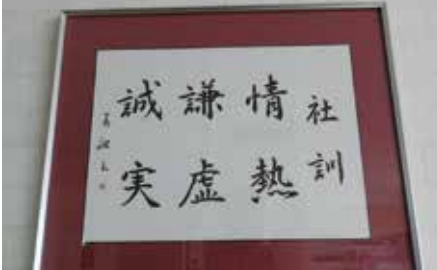 社訓
情熱
謙虚
誠実